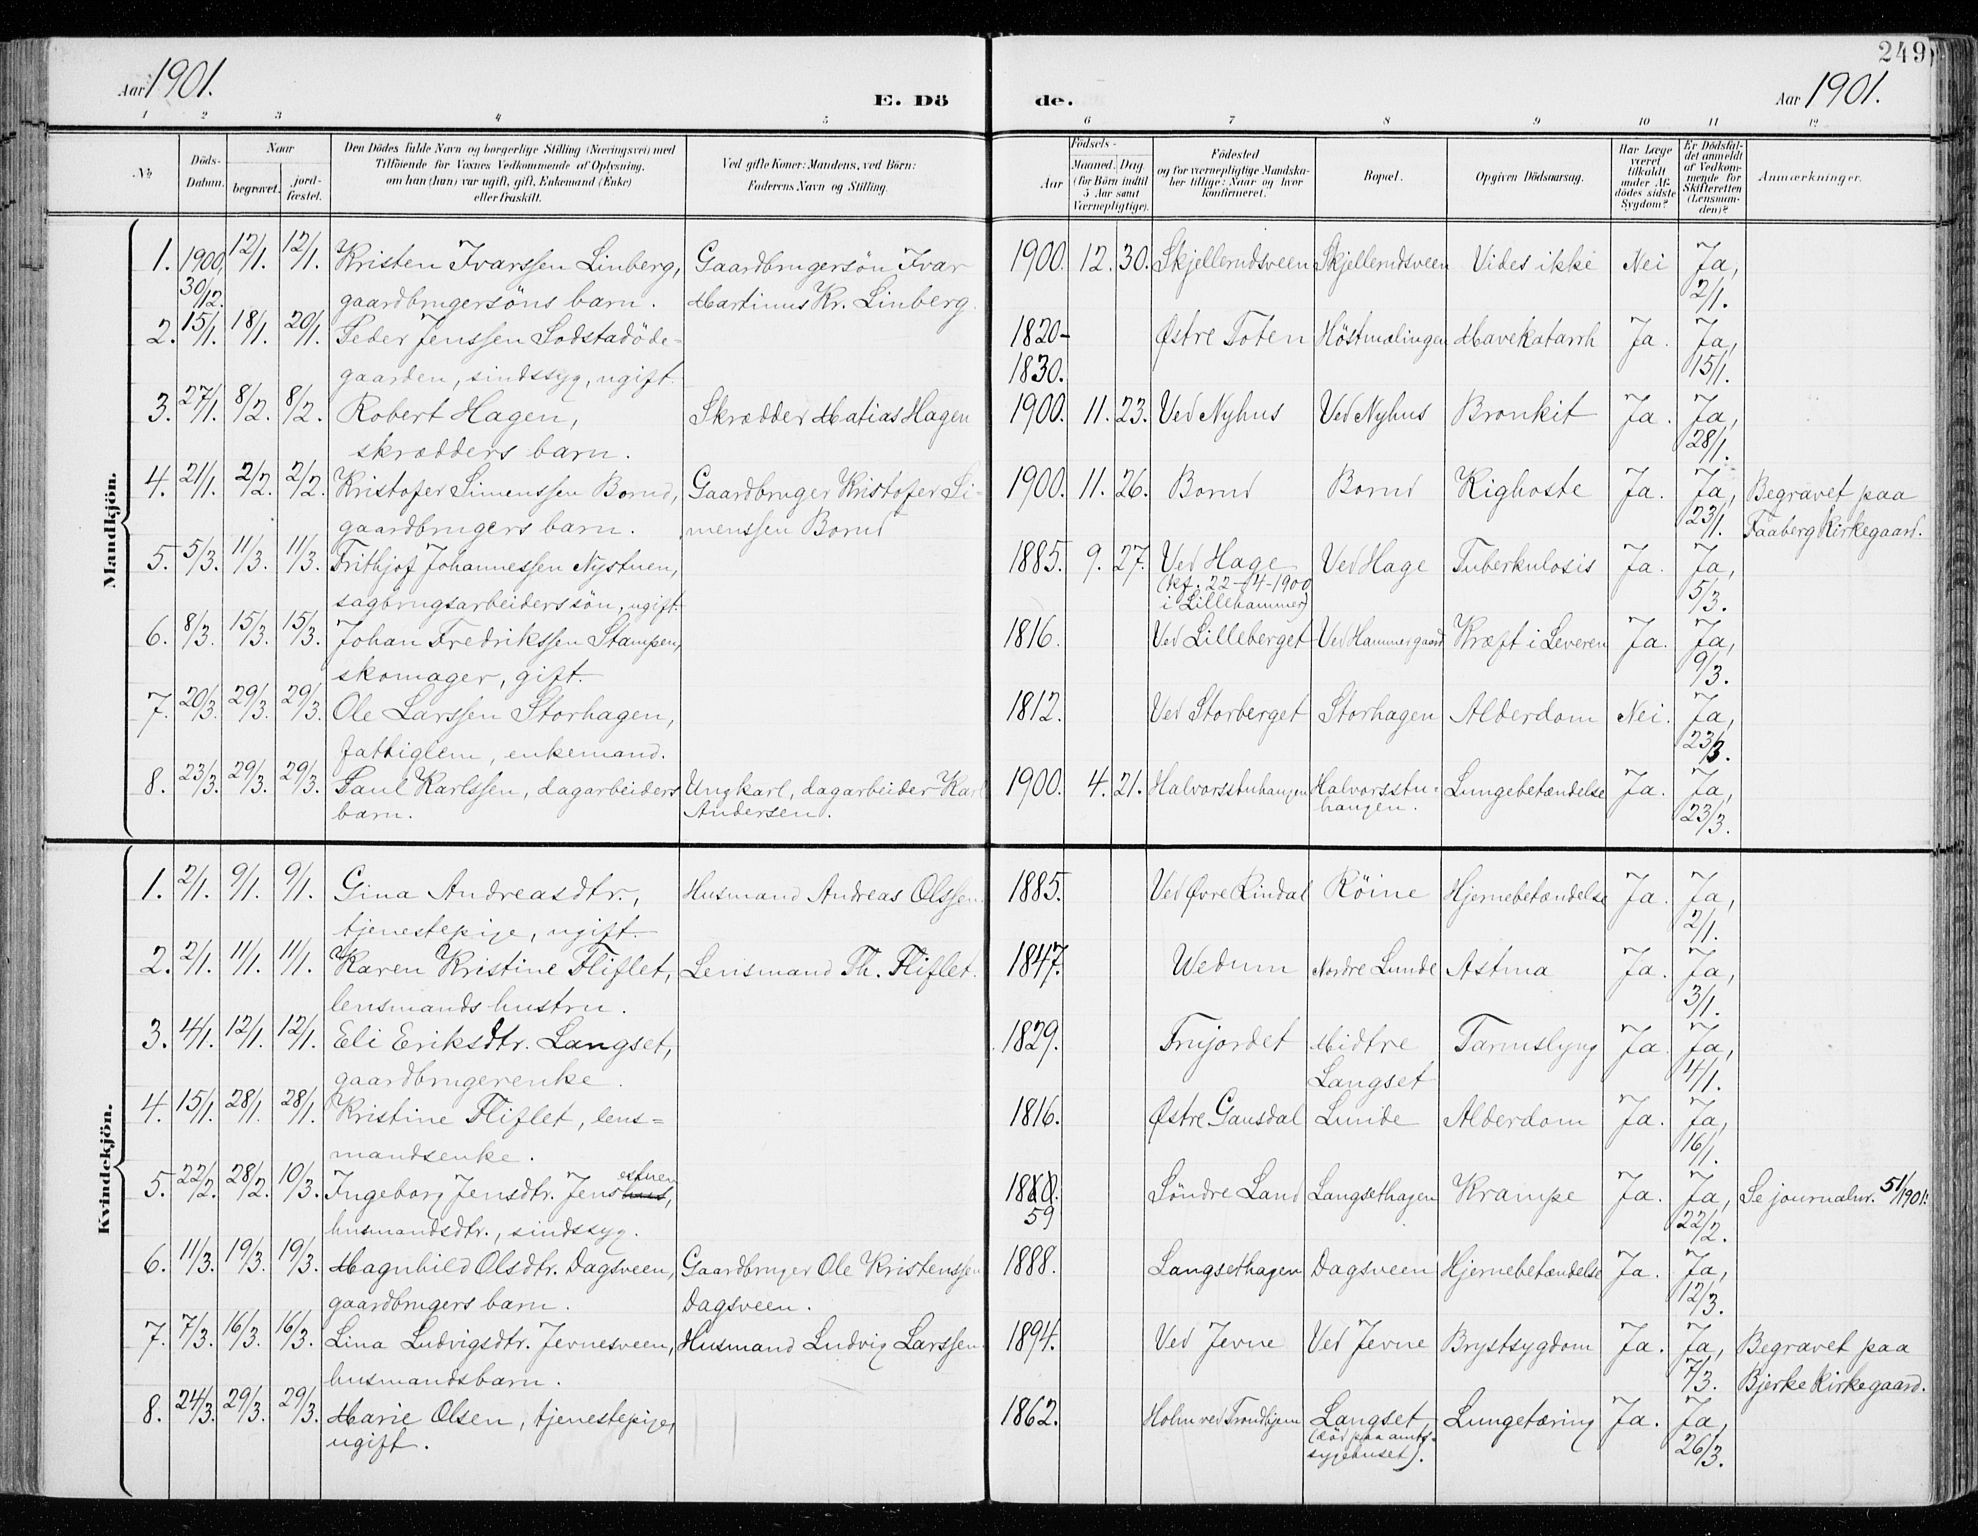 249
Aar 1901.
E. Dö de.
Aar 1901.
1 2 3 4 5 6 7 8 9 10 11 12
No.
Döds-Datum.
Naar
begravet.
jord-fæstet.
Den Dödes fulde Navn og borgerlige Stilling (Næringsvei) med
Tilföiende for Voxnes Vedkommende af Oplysning,
om han (hun) var ugift, gift, Enkemand (Enke)
eller fraskilt.
Ved gifte Koner: Mandens, ved Börn:
Faderens Navn og Stilling.
Födsels-
Aar
Maaned. Dag.
(for Börn indtil
5 Aar samt
Værnepligtige).
Födested
og for værnepligtige Mandska-
ber tillige: Naar og hvor
konfirmeret.
Bopæl.
Opgiven Dödsaarsag.
Har Læge
været
tilkaldt
under Af-
dödes sidste
Sygdom?
Er Dödsfal-
det anmeldt
af Vedkom-
mende for
Skifteretten
(Lensman-
den)?
Anmærkninger.
Mandkjön.
1. 1900 30/12. 12/1. 12/1. Kristen Ivarssen Linberg, Gaardbrugersön Ivar 1900. 12. 30. Skjellerudsveen Skjellerudsveen Vides ikke Nei Ja, 2/1.
gaardbrugersöns barn. Martinus Kr. Linberg.
2. 15/1. 18/1. 20/1. Peder Jenssen Sodstadöde- 1820-1830. Østre Toten Höstmælingen Mavekatarrh Ja. Ja, 15/1.
gaarden, sindssyg, ugift.
3. 27/1. 8/2. 8/2. Robert Hagen, Skrædder Matias Hagen 1900. 11. 23. Ved Nyhus Ved Nyhus Bronkit Ja. Ja, 28/1.
skrædders barn.
4. 21/1. 2/2. 2/2. Kristofer Simenssen Borud, Gaardbruger Kristofer Si- 1900. 11. 26. Borud Borud Kighoste Ja. Ja, 23/1. Begravet paa
gaardbrugers barn. menssen Borud Faaberg Kirkegaard.
5. 5/3. 11/3. 11/3. Frithjof Johannessen Nystuen, 1885. 9. 27. Ved Hage Ved Hage Tuberkulosis Ja. Ja, 5/3.
sagbrugsarbeiders sön, ugift. (kf. 22-/4-1900
i Lillehammer)
6. 8/3. 15/3. 15/3. Johan Fredrikssen Stampen, 1816. Ved Lilleberget Ved Hammergaard Kræft i Leveren Ja. Ja, 9/3.
skomager, gift.
7. 20/3. 29/3. 29/3. Ole Larssen Storhagen, 1812. Ved Storberget Storhagen Alderdom Nei. Ja, 23/3.
fattiglem, enkemand.
8. 23/3. 29/3. 29/3. Paul Karlssen, dagarbeiders Ungkarl, dagarbeider Karl 1900. 4. 21. Halvorsstuhaugen Halvorsstu- Lungebetændelse Ja. Ja, 23/3.
barn. Andersen. haugen.
Kvindekjön.
1. 2/1. 9/1. 9/1. Gina Andreasdtr., Husmand Andreas Olssen. 1885. Ved Øvre Rindal Röine Hjernebetændelse Ja. Ja, 2/1.
tjenestepige, ugift.
2. 2/1. 11/1. 11/1. Karen Kristine Fliflet, Lensmand Th. Fliflet. 1847. Wedum Nordre Lunde Astma Ja. Ja, 3/1.
lensmands hustru.
3. 4/1. 12/1. 12/1. Eli Eriksdtr. Langset, 1829. Frujordet Midtre Tarmslyng Ja. Ja, 4/1.
gaardbrugerenke. Langset
4. 15/1. 28/1. 28/1. Kristine Fliflet, lens- 1816. Østre Gausdal Lunde Alderdom Ja. Ja, 16/1.
mandsenke.
5. 22/2. 28/2. 10/3. Ingeborg Jensdtr. Jens estuen, 59 Söndre Land Langsethagen Krampe Ja. Ja, 22/2. Se journalnr. 51/1901.
husmandsdtr., sindssyg.
6. 11/3. 19/3. 19/3. Magnhild Olsdtr. Dagsveen, Gaardbruger Ole Kristenssen 1888. Langsethagen Dagsveen Hjernebetændelse Ja. Ja, 12/3.
gaardbrugers barn. Dagsveen.
7. 7/3. 16/3. 16/3. Lina Ludvigsdtr. Jevnesveen, Husmand Ludvig Larssen. 1894. Ved Jevne Ved Jevne Brystsygdom Ja. Ja, 7/3. Begravet paa
husmandsbarn. Bjerke Kirkegaard.
8. 24/3. 29/3. 29/3. Marie Olsen, tjenestepige, 1862. Holm ved Trondhjem Langset Lungetæring Ja. Ja, 26/3.
ugift. (död paa amts-
sygehuset).